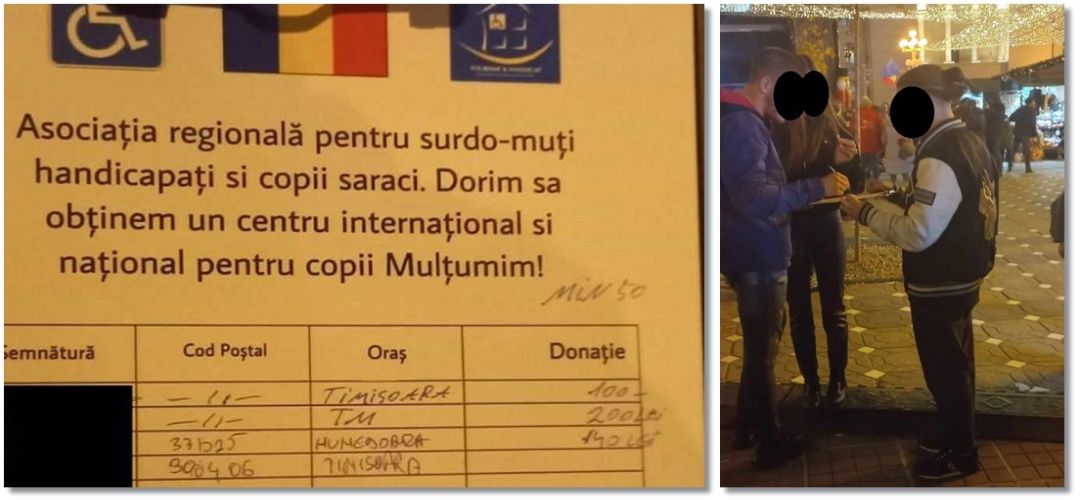 Asociația regională pentru surdo-muți
handicapați si copii saraci. Dorim sa
obținem un centru internațional si
național pentru copii Mulțumim!
MIN 50
Semnătură Cod Poștal Oraș Donație
—11— TIMISOARA 100-
—11— TM 200 Lei
HUNEDOARA 140 Lei
TIMISOARA